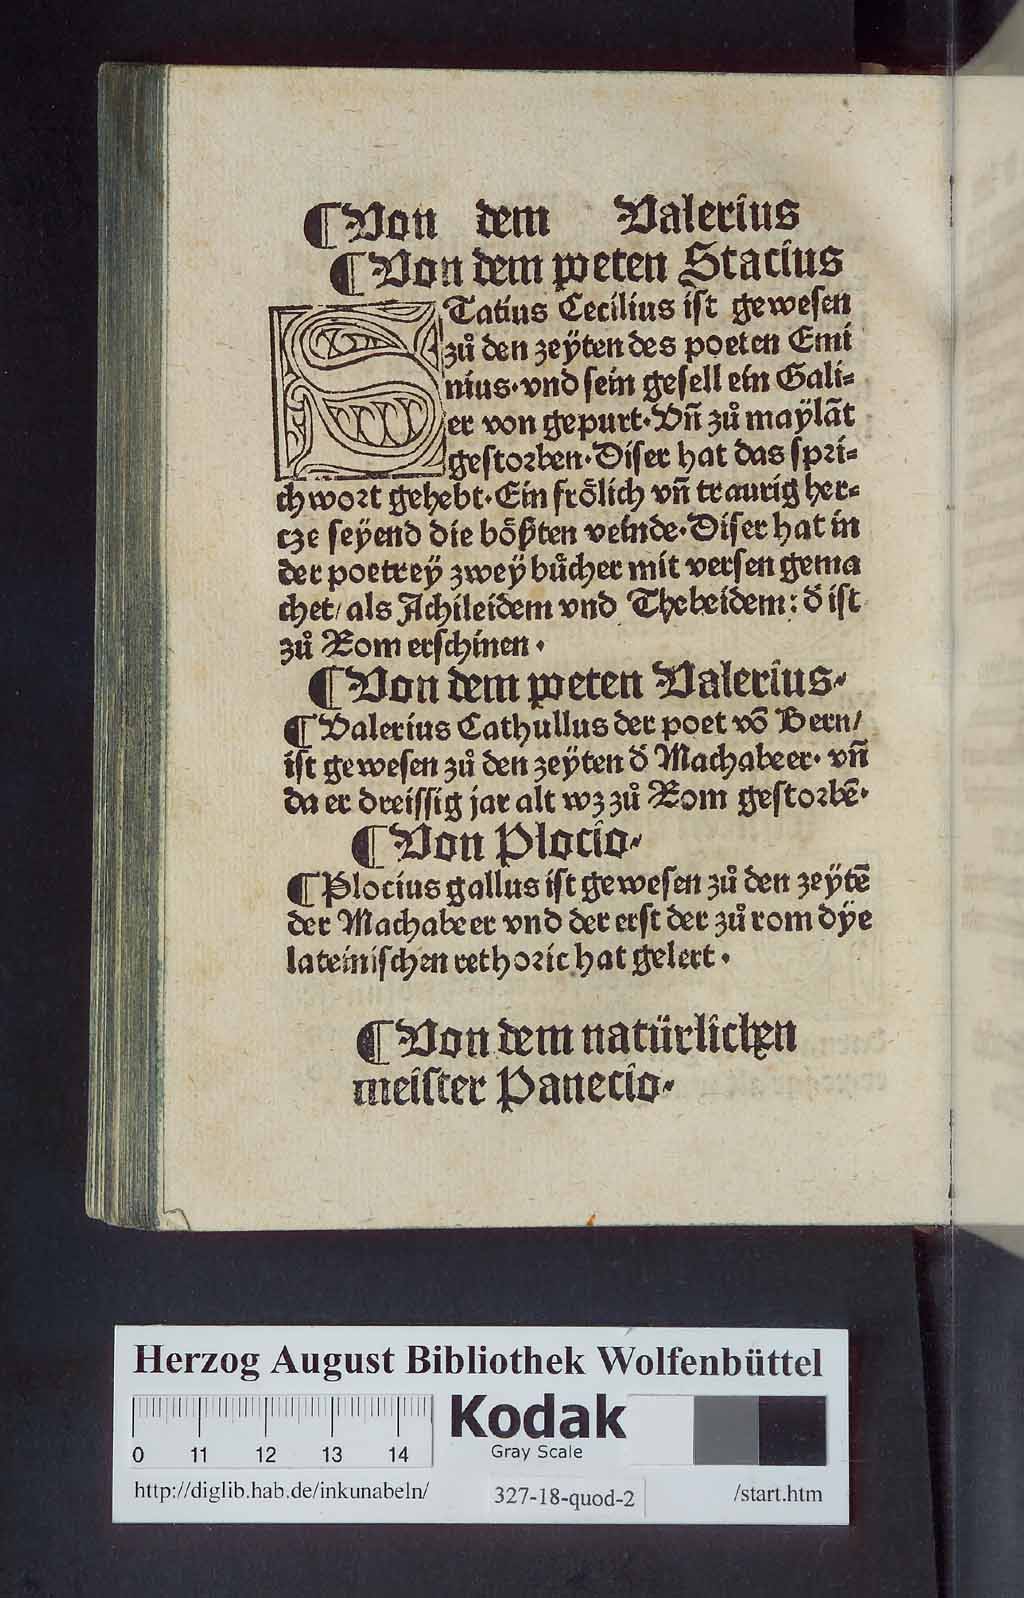 ¶Von dem Valerius
¶Von dem poeten Stacius
STatius Cecilius ist gewesen
zů den zeÿten des poeten Emi
nius·vnd sein gesell ein Gali⸗
er von gepurt·Vñ zů maÿlãt
gestorben·Diser hat das spri⸗
ch wort gehebt·Ein froͤlich vñ traurig her⸗
cze seÿend die boͤßten veinde·Diser hat in
der poetreÿ zweÿ bůcher mit versen gema
chet/als Achileidem vnd Thebeidem: d̕ ist
zů Rom erschinen·
¶Von dem poeten Valerius·
¶Valerius Cathullus der poet võ Bern/
ist gewesen zů den zeÿten d̕ Machabeer·vñ
da er dreissig jar alt wz zů Rom gestorbẽ·
¶Von Plocio·
¶Plocius gallus ist gewesen zů den zeÿtẽ
der Machabeer vnd der erst der zů rom dÿe
lateinischen rethoric hat gelert·
¶Von dem natürlichen
meister Panecio·
Herzog August Bibliothek Wolfenbüttel
Kodak
Gray Scale
0 11 12 13 14
http://diglib.hab.de/inkunabeln/ 327-18-quod-2 /start.htm